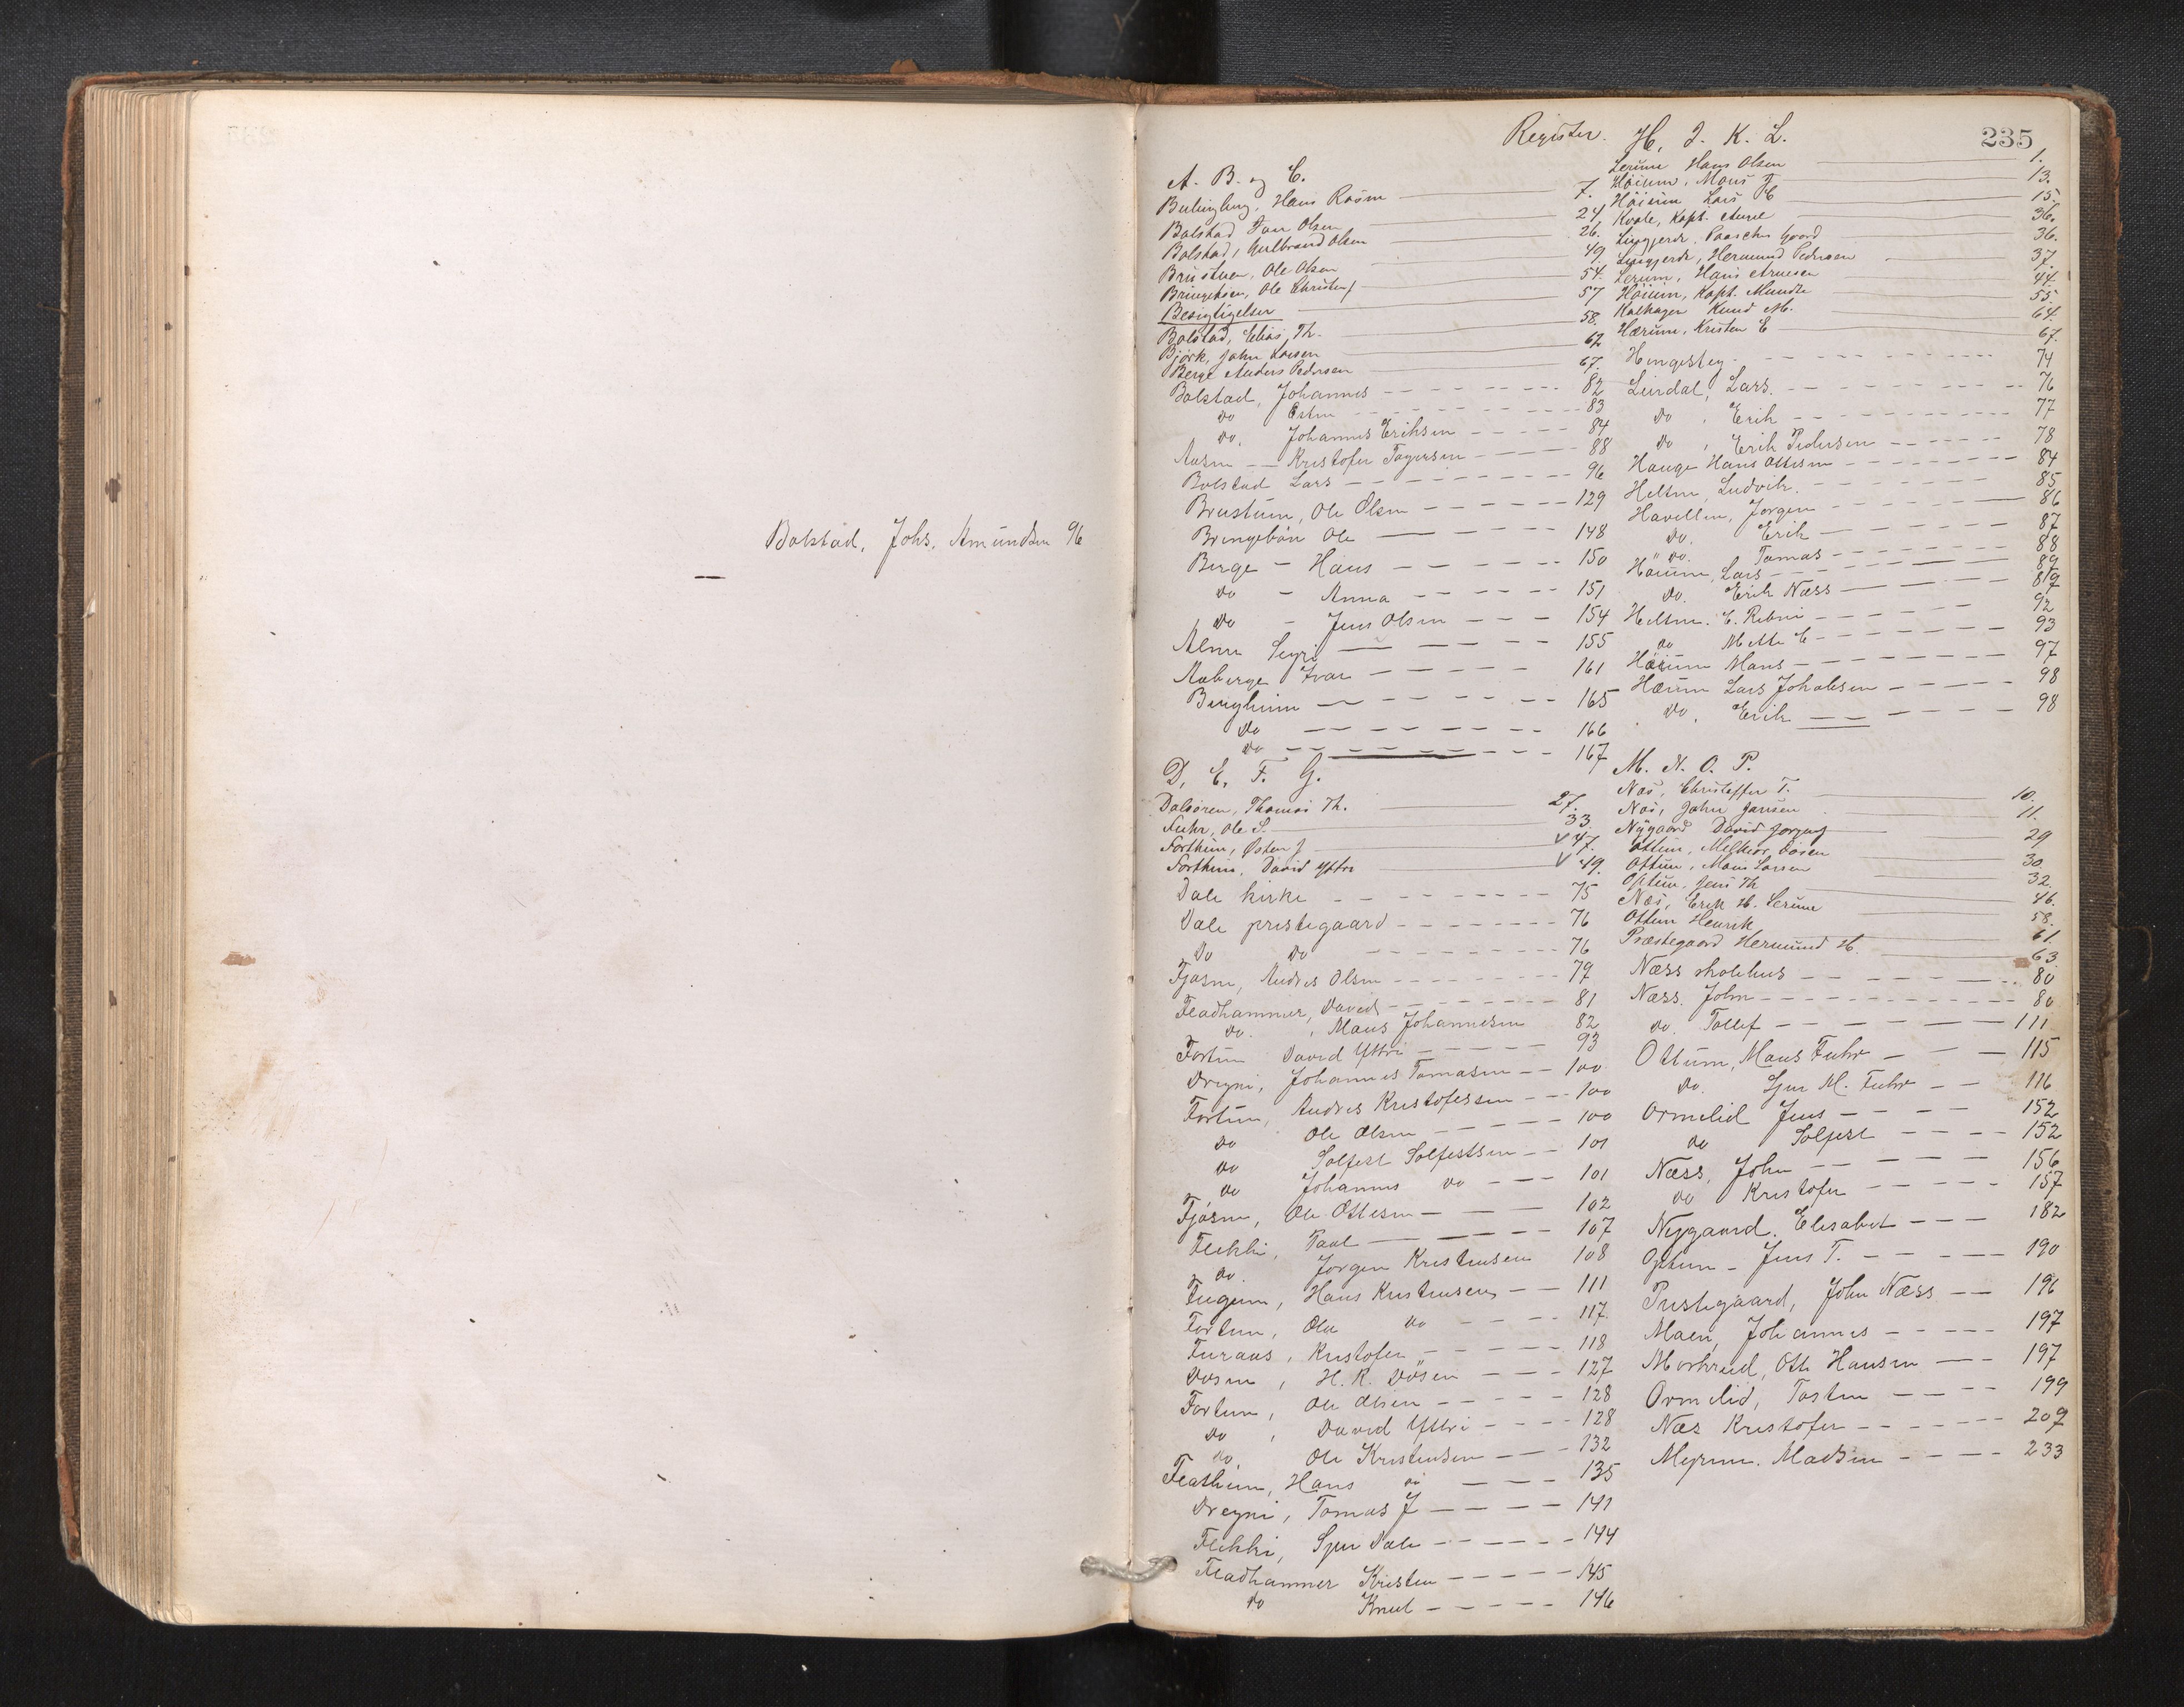 Bolstad, Johs. Amundsen 96
Register.
235
A. B. og C.
Bolstad Olsen 24
Bolstad, Gulbrand Olsen 26.
Brustuen, Ole Olsen 49
Ole Christens 54.
Besigtigelser 57
Bolstad, Elias Th. 58.
Bjørk, John Larsen 62
Berge Anders Pedersen 67.
Bolstad, Johannes 82
do Østen 83
do. Johannes Eriksen 84
Aasen Kristofer 88
Bolstad Lars 96
Brustuen, Ole Olsen 129
Bringebøn Ole 148
Berge - Hans 150
do - Anna 151
do - Jens Olsen 154
155
Aaberge Ivar 161
Bergheim 165
do 166
do 167
D. E. F. G.
Dalsøren, Thomas Th. 27.
Fuhr, Ole S. 33.
Forthun, Østen J V 47.
Forthun, David Yttri V 49.
Dale kirke 75
Dale prestegaard 76
Do do 76
Fjøsne, Andres Olsen 79
Fladhammer, David 81
do. , Mons Johannesen 82
Fortun David Yttri 93
Dregni, Johannes Tomasen 100
Fortun, Andres Kristofersen 100
do Ole Olsen 100
do Solfest Solfestsen 101
do Johannes do 101
Fjøsne, Ole Ottesen 102
Flekke, Paul 107
do. Jørgen Kristensen 108
Fugum, Hans Kristensen 111
Fortun, Ola do 117.
Furaas, Kristofer 118
Døsen, H. K. Døsen 127
Fortun, Ole Olsen 128
do , David Yttri 128
do, Ole Kristensen 132
Flatheim, Hans do 135
Dregni, Tomas J 141
Flekke, Sjur Dale 144
Fladhammer Kristen 145
do Knut 146
H. I. K. L.
Lerum Hans Olsen 1.
Høium, Mons 13.
Høium Lars E 15.
Kvale, Kapt. 36.
Paasche Gaard 36.
Hermund Pedersen 37
Lerum, Hans Arnesen 44.
Høium, Kapt. Munthe 55.
Kalhagen Knud M. 64.
Hærum, Kristen E 67.
Hengesteg 74
Lindal, Lars 76
do , Erik 77
do , Erik Pedersen 78
Hauge Hans Ottesen 84
Heltne, Ludvik. 85
Havellen, Jørgen 86
do. Erik 87
do. Tomas 88
Høium, Lars 89
do. Erik Næss 89
Heltne. E. 92
do Mette E 93
Høium Mons 97
Hærum Lars 98
do. Erik 98
M. N. O. P.
Næs, Christoffer T. 10.
Næs, John Jansen 11.
Nygaard David Jørgens 29
Ottum, Melkior 30.
Ottum, Mons Larsen 32.
Optun, Jens Th 46.
Næs, Erik H. Lerum 58.
Ottum Henrik 61.
Præstegaard Hermund H. 63
Næss skolehus 80
Næss. John 80
do. Tollef 111
Ottum, Mons Fuhr 115
do. Sjur M. Fuhr 116
Ormelid Jens 152
do Solfest 152
Næss, John 156
do Kristofer 157
Nygaard. Elisabet 182
Optun - Jens T. 190
Prestegaard, John Næss 196
Johannes 197
Morkreid, Otte Hansen 197
Ormelid, Tosten 199
Næs Kristofer 209
Myrene. Madsen 233